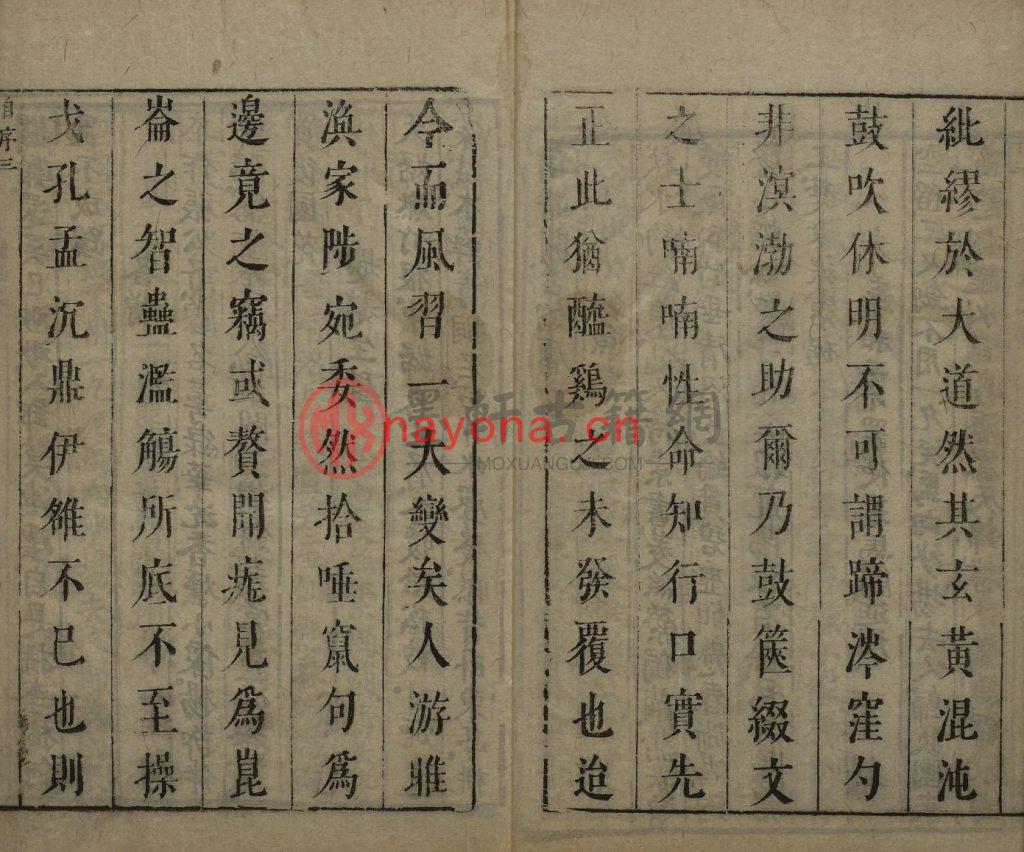 紕繆於大道然其玄黃混沌
鼓吹休明不可謂蹄涔窪勺
非溟渤之助爾乃鼓篋綴文
之士喃喃性命知行口實先
正此猶醯鷄之未發覆也迨
今而風習一大變矣人游雎
渙家陟宛委然拾唾竄句為
邊竟之竊或贅聞疣見為崑
崙之智蠱濫觴所底不至操
戈孔孟沉鼎伊雒不已也則
自序三
墨軒古籍網
MOXUANGUJI.COM
nayona.cn